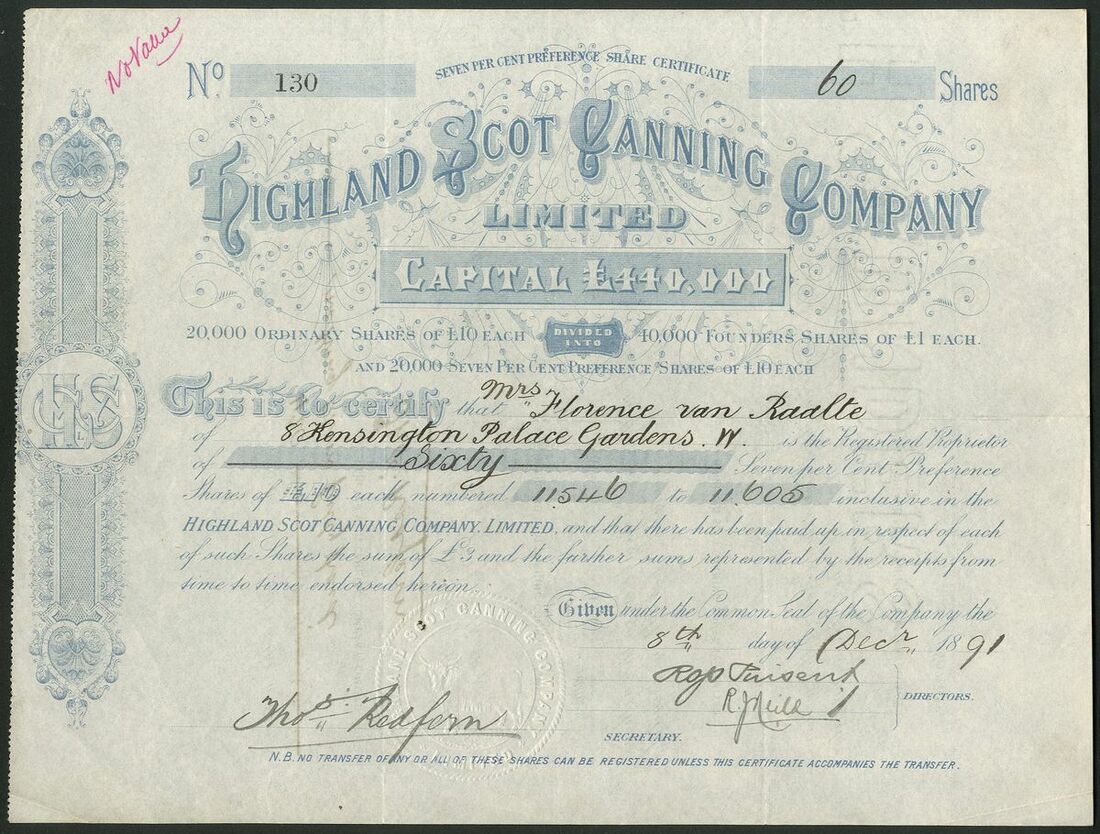 No Value
SEVEN PER CENT PREFERENCE SHARE CERTIFICATE
No 130
60 Shares
HIGHLAND SCOT CANNING COMPANY
LIMITED
CAPITAL £440,000
20,000 ORDINARY SHARES OF £10 EACH DIVIDED INTO 40,000 FOUNDERS SHARES OF £1 EACH.
AND 20,000 SEVEN PER CENT PREFERENCE SHARES OF £10 EACH
This is to certify that Mrs. Florence van Raalte
of 8 Kensington Palace Gardens. W. is the Registered Proprietor
of Sixty Seven per Cent Preference
Shares of £10 each numbered 11546 to 11605 inclusive in the
HIGHLAND SCOT CANNING COMPANY, LIMITED, and that there has been paid up in respect of each
of such Shares the sum of £3 and the further sums represented by the receipts from
time to time endorsed hereon.
Given under the Common Seal of the Company the
8th day of Decr. 1891
DIRECTORS.
Thos. Redfern
SECRETARY.
N.B. NO TRANSFER OF ANY OR ALL OF THESE SHARES CAN BE REGISTERED UNLESS THIS CERTIFICATE ACCOMPANIES THE TRANSFER.